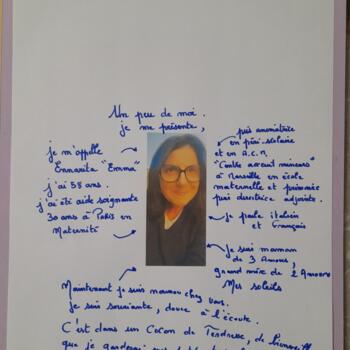 Un peu de moi.
je me présente,
je m'appelle
Emmarita "Emma"
j'ai 58 ans.
j'ai été aide soignante
30 ans à PARIS en
Maternité
puis animatrice
en péri-scolaire
et en A.C.M.
"Centre accueil mineurs"
à Marseille en école
maternelle et primaire
puis directrice adjointe.
je parle italien
et Français
Je suis maman
de 3 Amours,
grand mère de 2 Amours
Mes soleils
Maintenant je suis nounou chez vous.
je suis souriante, douce à l'écoute.
C'est dans un Cocon de Tendresse, de bienveill
que je garderai